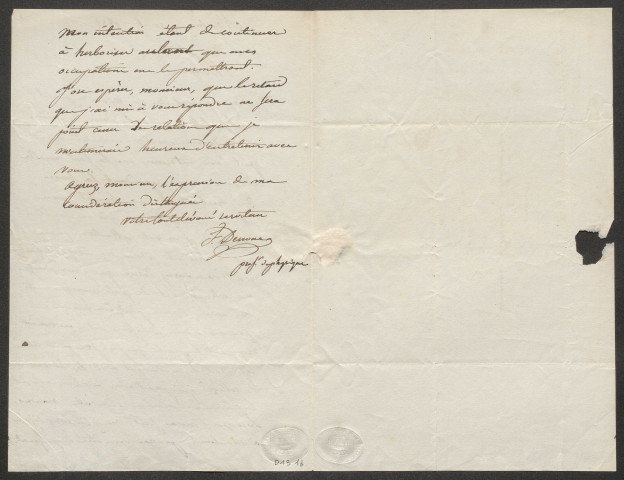 Mon intention étant de continuer
à herboriser autant que mes
occupations me le permettront.
J'ose espérer, monsieur, que le retard
que j'ai mis à vous répondre ne sera
point cause de relations que je
m'estimerais heureux d'entretenir avec
vous.
Agréez, monsieur, l'expression de ma
considération distinguée
votre tout dévoué serviteur
prof. de physique